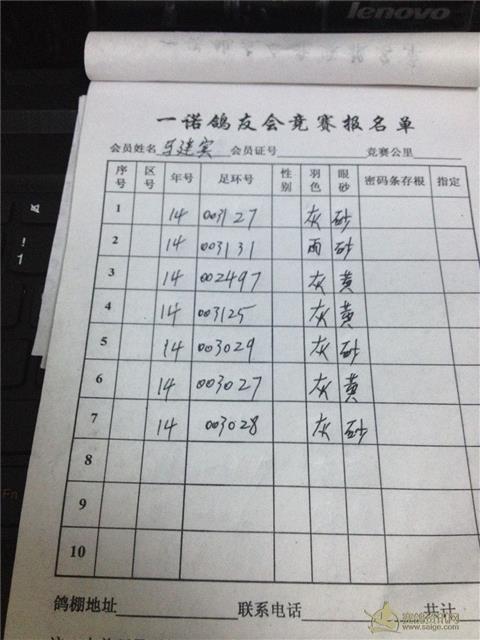 lenovo
一诺鸽友会竞赛报名单
会员姓名 王建实 会员证号 竞赛公里
序号 区号 年号 足环号 性别 羽色 眼砂 密码条存根 指定
1 14 003127 灰 砂
2 14 003131 雨 砂
3 14 002497 灰 黄
4 14 003125 灰 黄
5 14 003029 灰 砂
6 14 003027 灰 黄
7 14 003028 灰 砂
8
9
10
鸽棚地址 联系电话 共计
赛鸽资讯网
www.saige.com
! 1
Fn